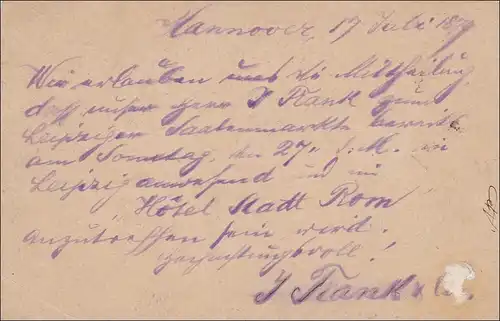 Hannover, 17 Juli 1879
Wir erlauben uns die Mittheilung
daß unser Herr J Plank zum
Leipziger Saatenmarkte bereits
am Sonntag, den 27. d. M. in
Leipzig anwesend und im
Hôtel Stadt Rom
anzutreffen sein wird.
Hochachtungsvoll!
J Plank &